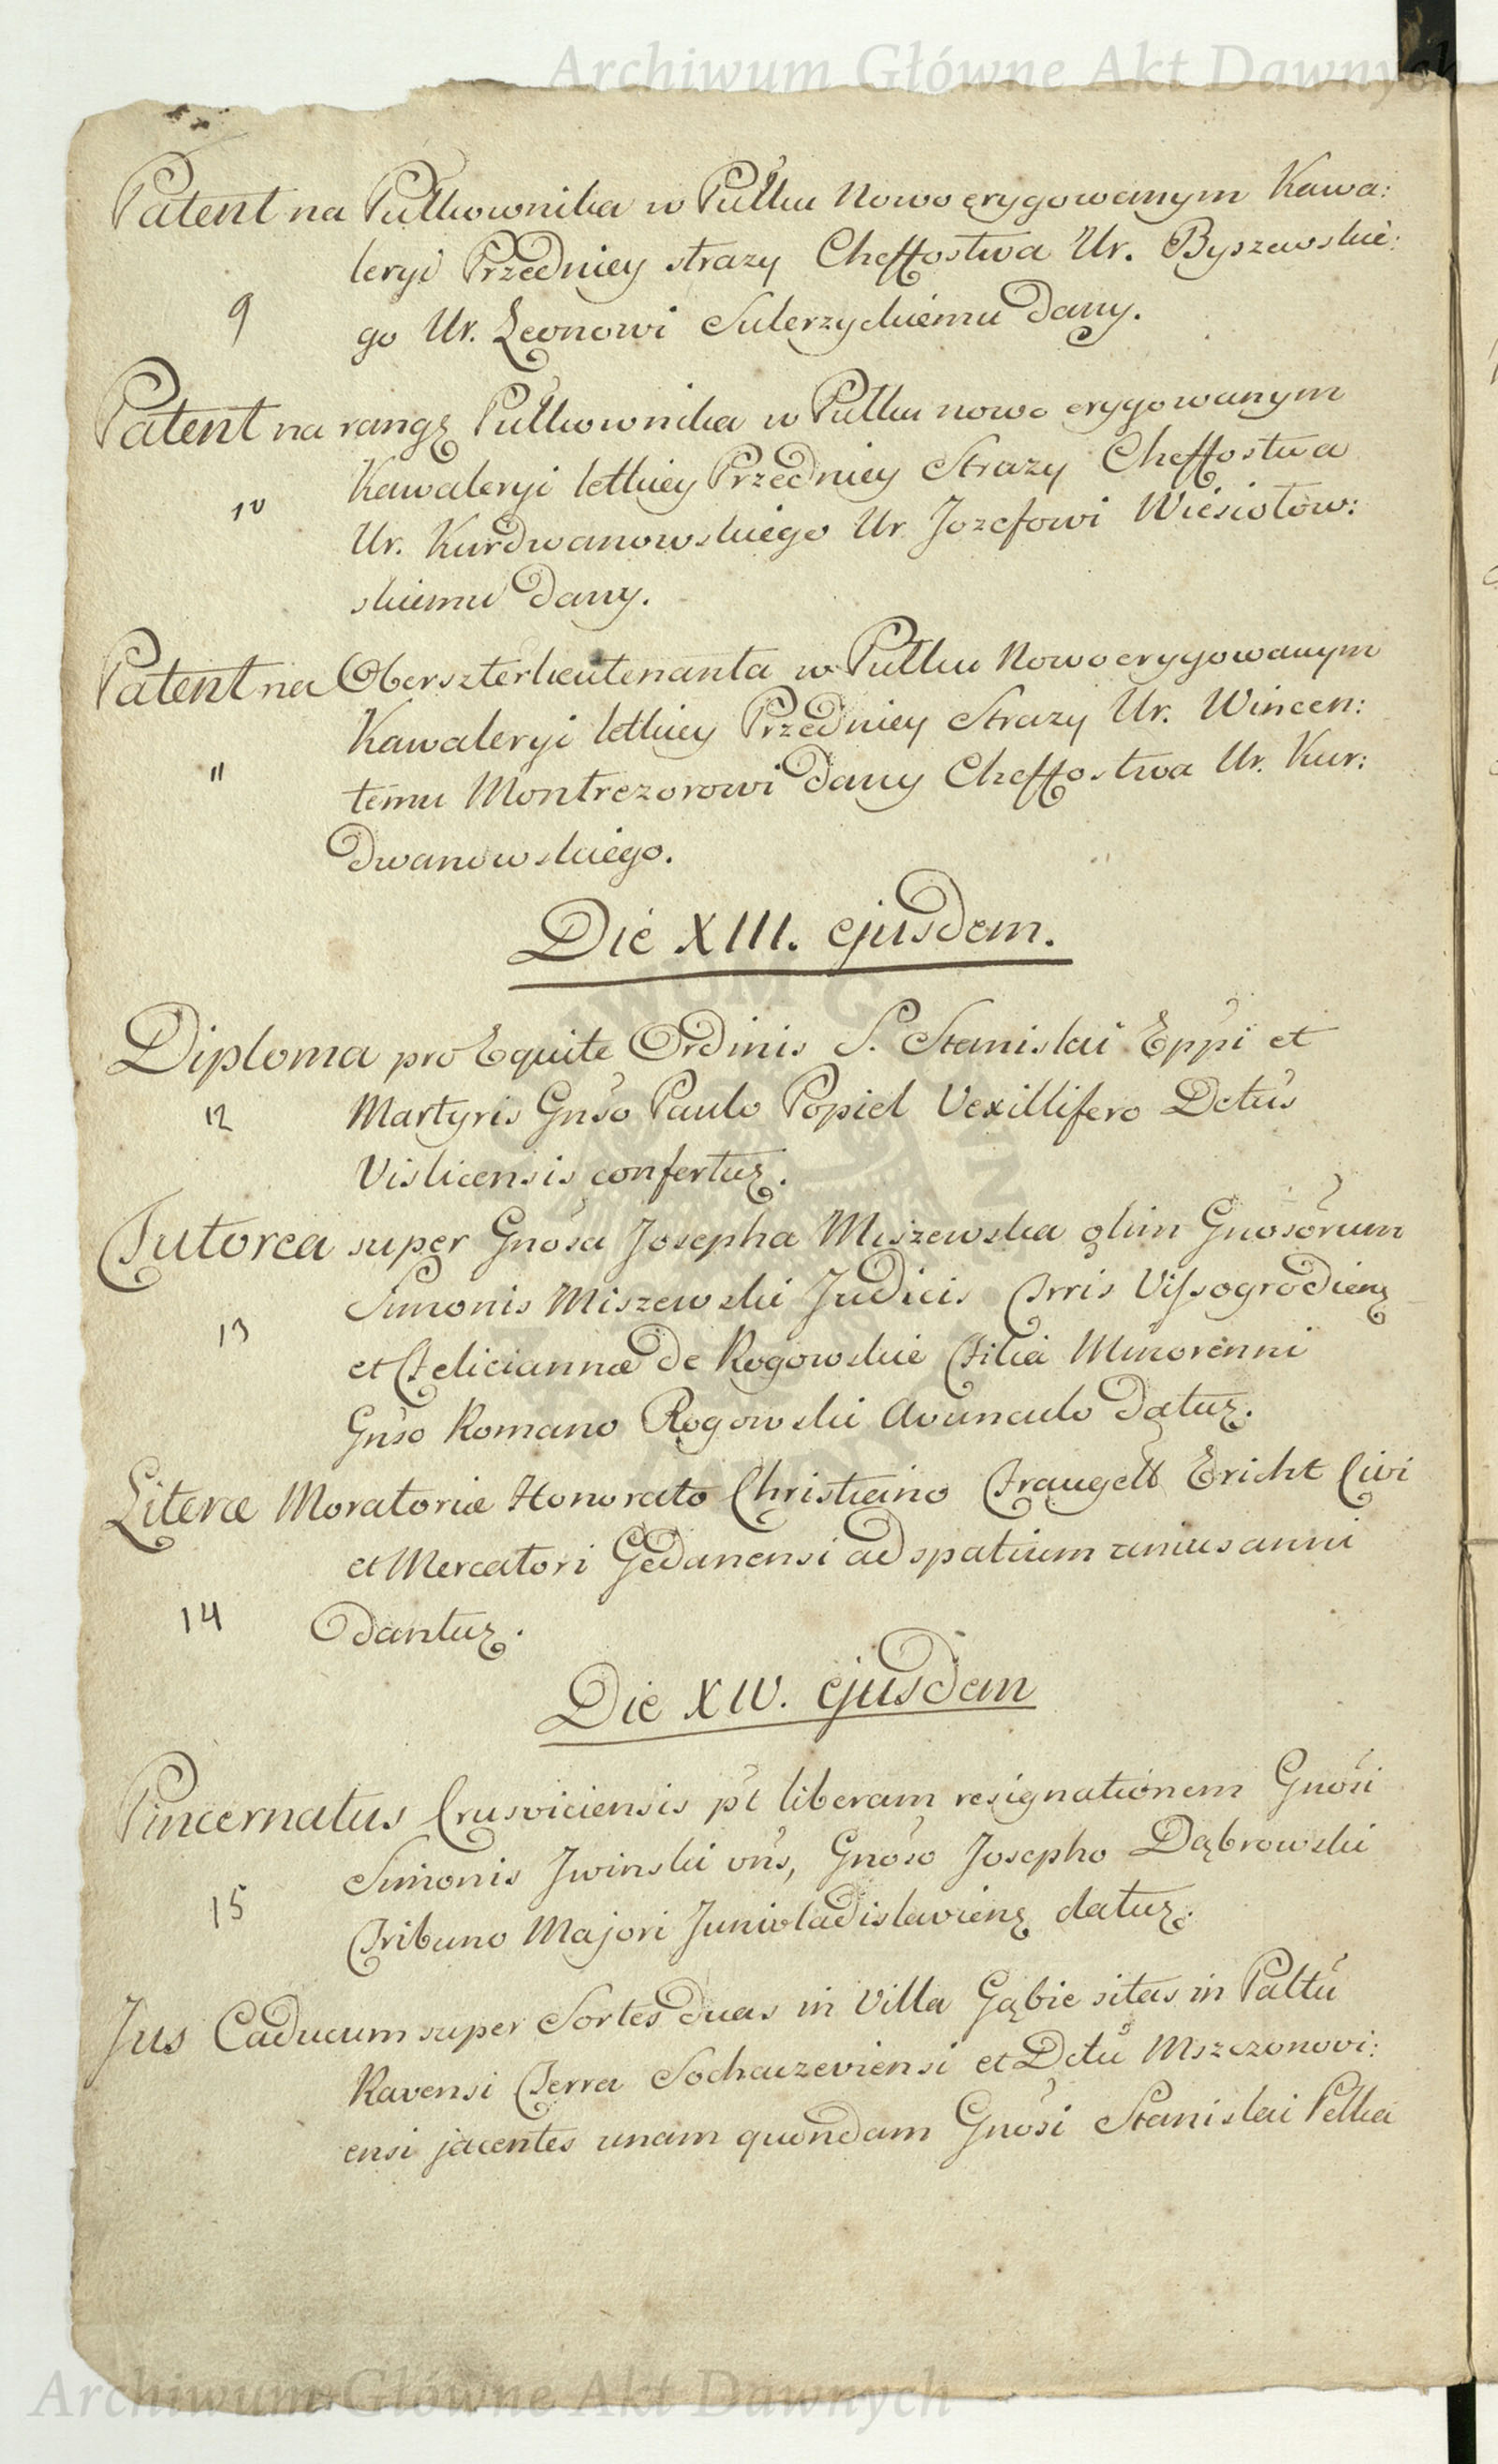 Archiwum Główne Akt Dawnych
Patent na Pułkownika w Pułku Nowo erygowanym Kawa:
leryi Przedniey strazy Cheffostwa Ur. Byszewskie:
9 go Ur. Leonowi Sulerzyckiemu Dany.
Patent na rangę Pułkownika w Pułku nowo erygowanym
Kawaleryi letkiey Przedniey Strazy Cheffostwa
10 Ur. Kurdwanowskiego Ur Jozefowi Wiesiołow:
skiemu Dany.
Patent na Oberszterlieutenanta w Pułku Nowo erygowanym
Kawaleryi letkiey Przedniey Strazy Ur. Wincen:
11 temu Montrezorowi Dany Cheffostwa Ur. Kur:
Dwanowskiego.
Die XIII. ejusdem.
Diploma pro Equite Ordinis S. Stanislai Eppi et
12 Martyris Gnso Paulo Popiel Vexillifero Dctus
Vislicensis confertur.
Tutorea super Gnosa Josepha Miszewska olim Gnosorum
Simonis Miszewski Judicis Trris Vissogrodiens
13 et Feliciannæ de Rogowskie Filia Minorenni
Gnso Romano Rogowski Avunculo Datur.
Literæ Moratoriæ Honorato Christiano Traugett Ericht Civi
et Mercatori Gedanensi ad spatium unius anni
14 Dantur.
Die XIV. ejusdem
Pincernatus Crusviciensis pt liberam resignationem Gnosi
Simonis Jwinski vns, Gnoso Josepho Dąbrowski
15 Tribuno Majori Junivladislaviens datur.
Jus Caducum super Sortes Duas in Villa Gąbie sitas in Paltu
Ravensi Terra Sochaczeviensi et Dctu Mszczonovi:
ensi jacentes unam quondam Gnosi Stanislai Pełka
Archiwum Główne Akt Dawnych